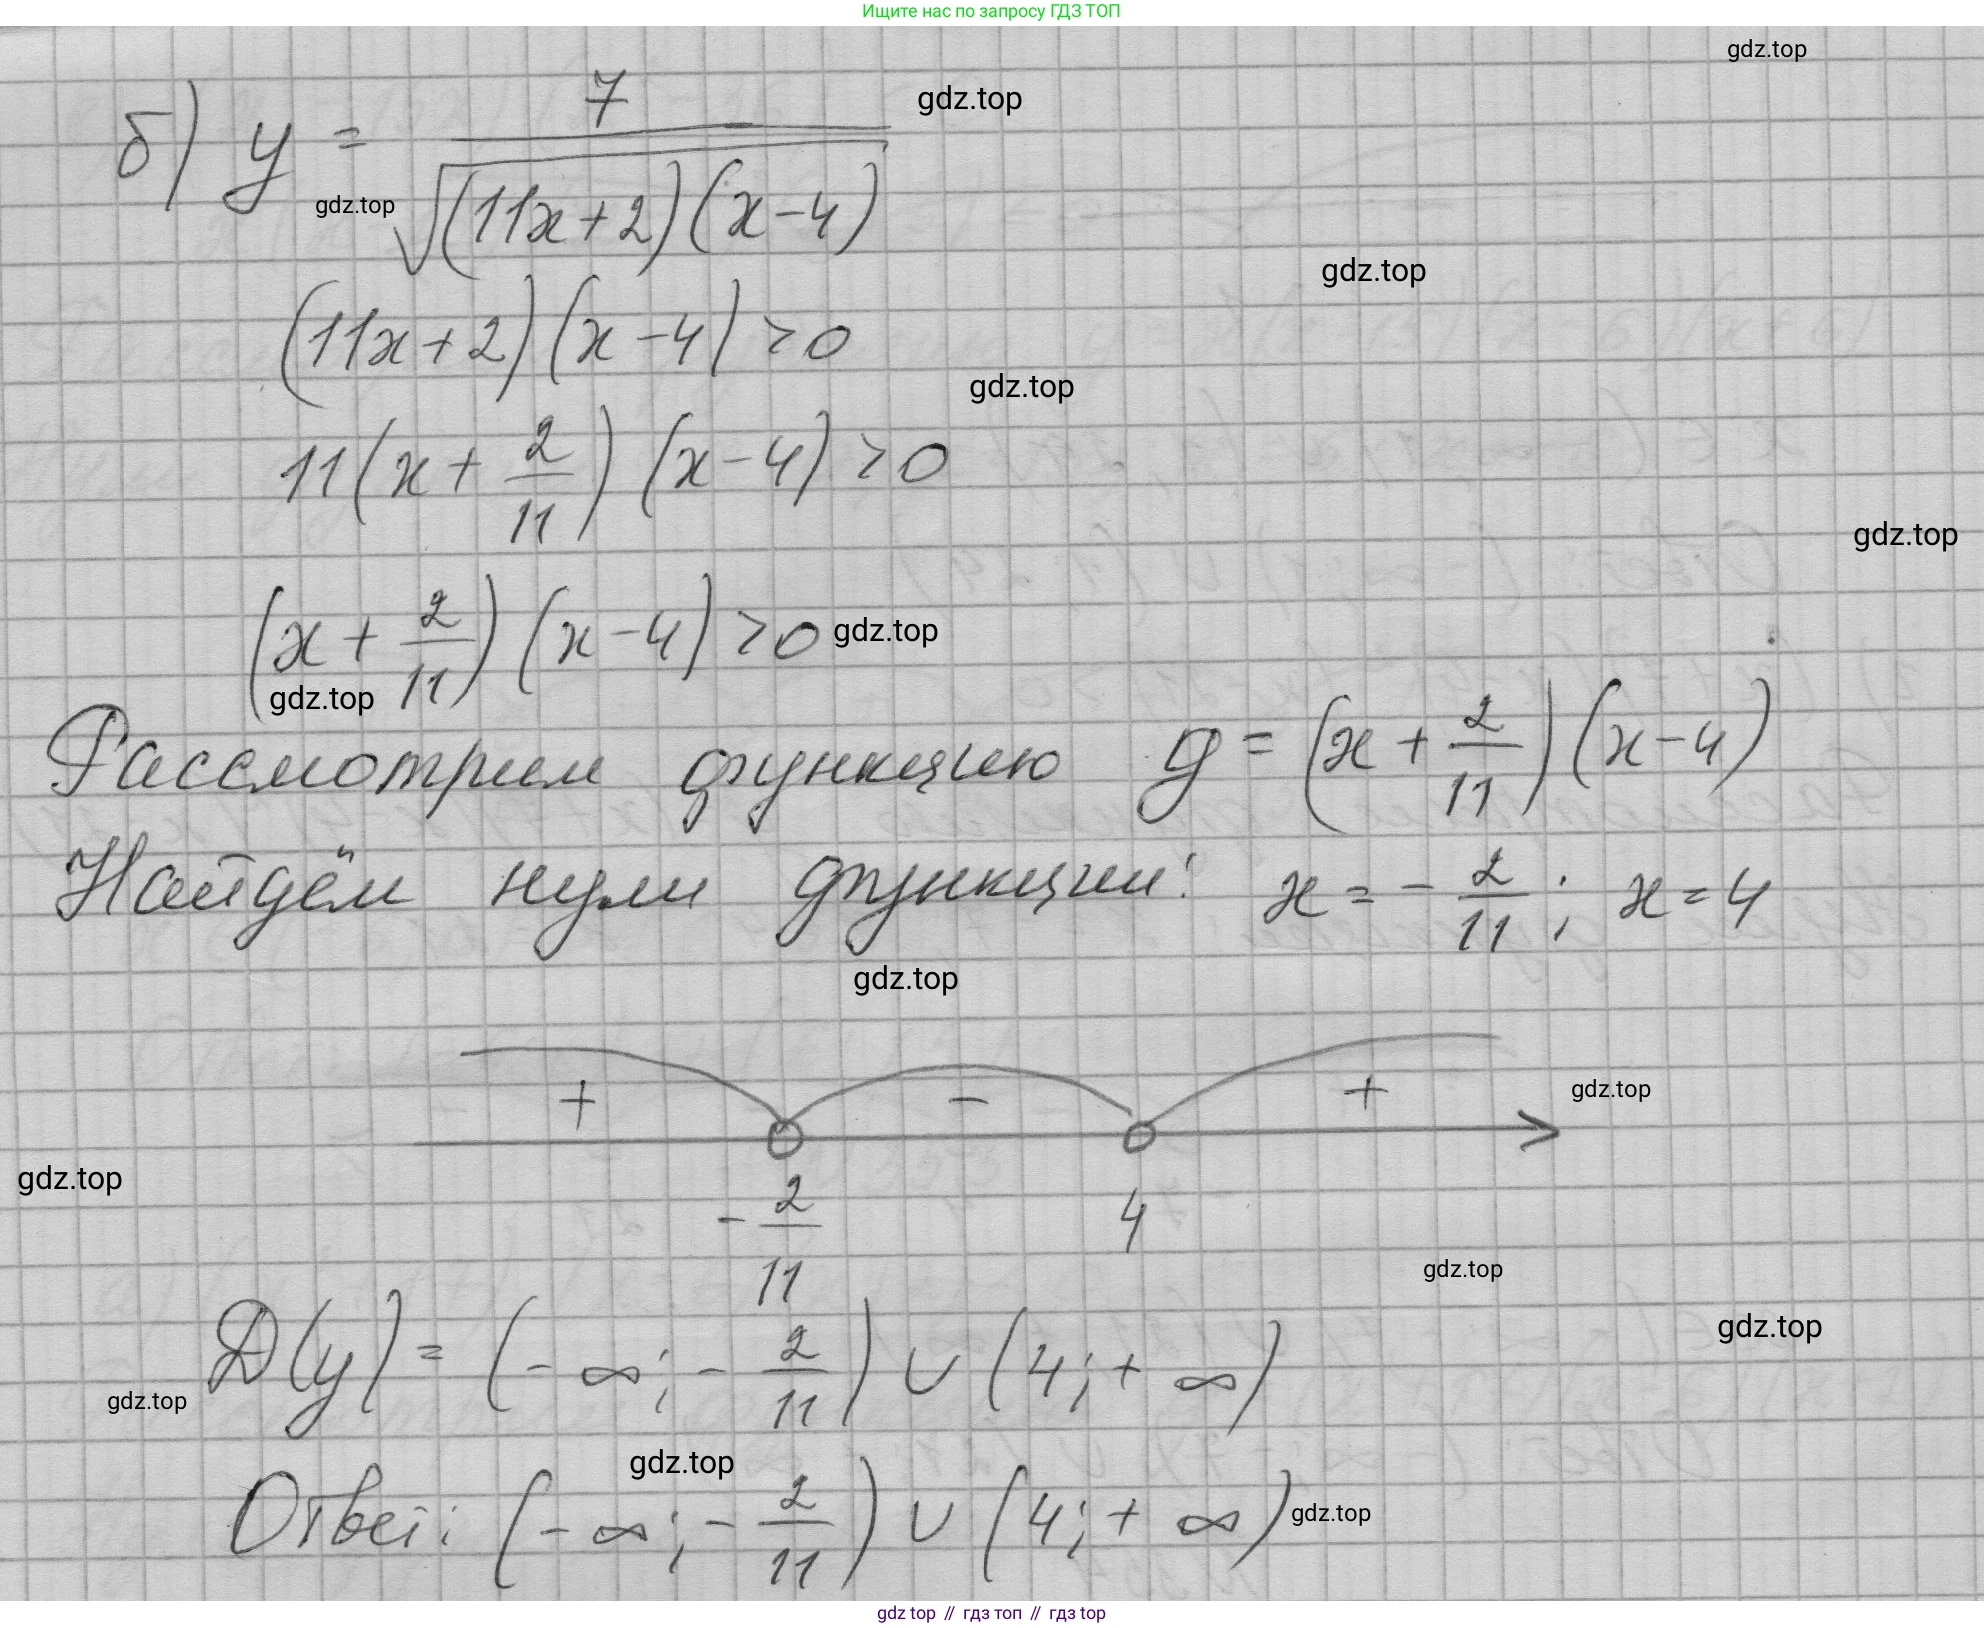 Ищите нас по запросу ГДЗ ТОП
gdz.top
б) y = 7 / √((11x+2)(x-4))
gdz.top
gdz.top
(11x+2)(x-4) > 0
gdz.top
gdz.top
11(x + 2/11)(x-4) > 0
gdz.top
(x + 2/11)(x-4) > 0
gdz.top
gdz.top
Рассмотрим функцию y = (x + 2/11)(x-4)
Найдём нули функции: x = - 2/11; x = 4
gdz.top
+ - +
gdz.top
gdz.top
- 2/11 4
gdz.top
gdz.top
D(y) = (-∞; - 2/11) ∪ (4; + ∞)
gdz.top
gdz.top
Ответ: (-∞; - 2/11) ∪ (4; + ∞)
gdz.top
gdz top // гдз топ // гдз top